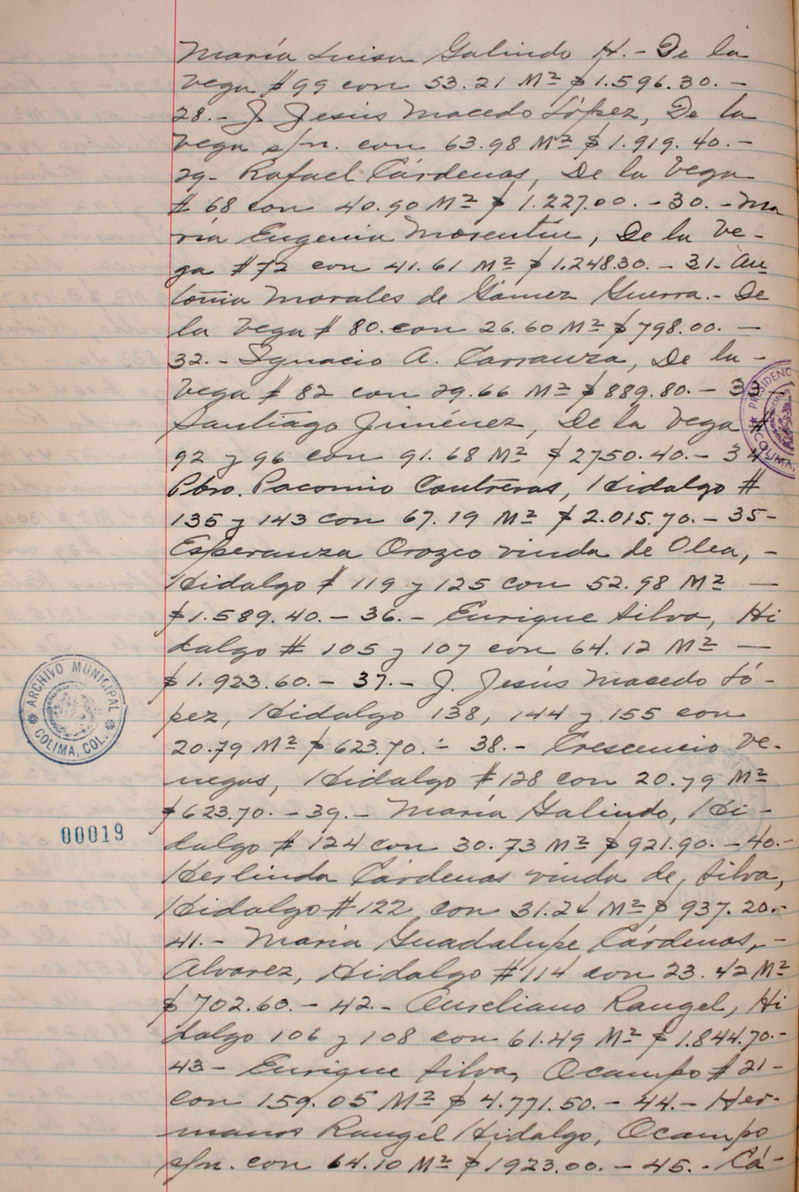 María Luisa Galindo H.- De la
Vega # 99 con 53.21 M² $1.596.30.-
28.- J. Jesús Macedo López, De la
Vega s/n. con 63.98 M² $1.919.40.-
29- Rafael Cárdenas, De la Vega
# 68 con 40.90 M² $1.227.00.-30.-Ma
ría Eugenia Morentín, De la Ve-
ga #72 con 41.61 M² $1.248.30.-31-An
tonia Morales de Gómez Guerra.- De
la Vega # 80.con 26.60 M² $798.00.-
32.- Ignacio A. Carranza, De la-
Vega # 82 con 29.66 M² $889.80.- 33-
Santiago Jiménez, De la Vega #
92 y 96 con 91.68 M² $2750.40.- 34-
Pbro. Pacomio Contreras, Hidalgo #
135 y 143 con 67.19 M² $2.015.70.-35-
Esperanza Orozco viuda de Olea,-
Hidalgo # 119 y 125 con 52.98 M² -
$1.589.40.-36.- Enrique Silva, Hi
dalgo # 105 y 107 con 64.12 M² -
$1.923.60.-37.- J. Jesús Macedo Ló-
pez, Hidalgo 138, 144 y 155 con
20.79 M² $623.70.- 38.- Crescencio Ve-
negas, Hidalgo #128 con 20.79 M²
$623.70.-39.- María Galindo, Hi-
dalgo # 124 con 30.73 M² $921.90.-40.-
Herlinda Cárdenas viuda de, Silva,
Hidalgo #122 con 31.24 M² $937.20.-
41.- María Guadalupe Cárdenas,-
Alvarez, Hidalgo #114 con 23.42 M²
$702.60.-42.- Aureliano Rangel, Hi
dalgo 106 y 108 con 61.49 M² $1.844.70.-
43- Enrique Silva, Ocampo # 21-
con 159.05 M² $4.771.50.-44.- Her-
manos Rangel Hidalgo, Ocampo
s/n. con 64.10 M² $1923.00.-45.- Cá-
ARCHIVO MUNICIPAL
COLIMA, COL.
00019
PRESIDENC
COLIMA,